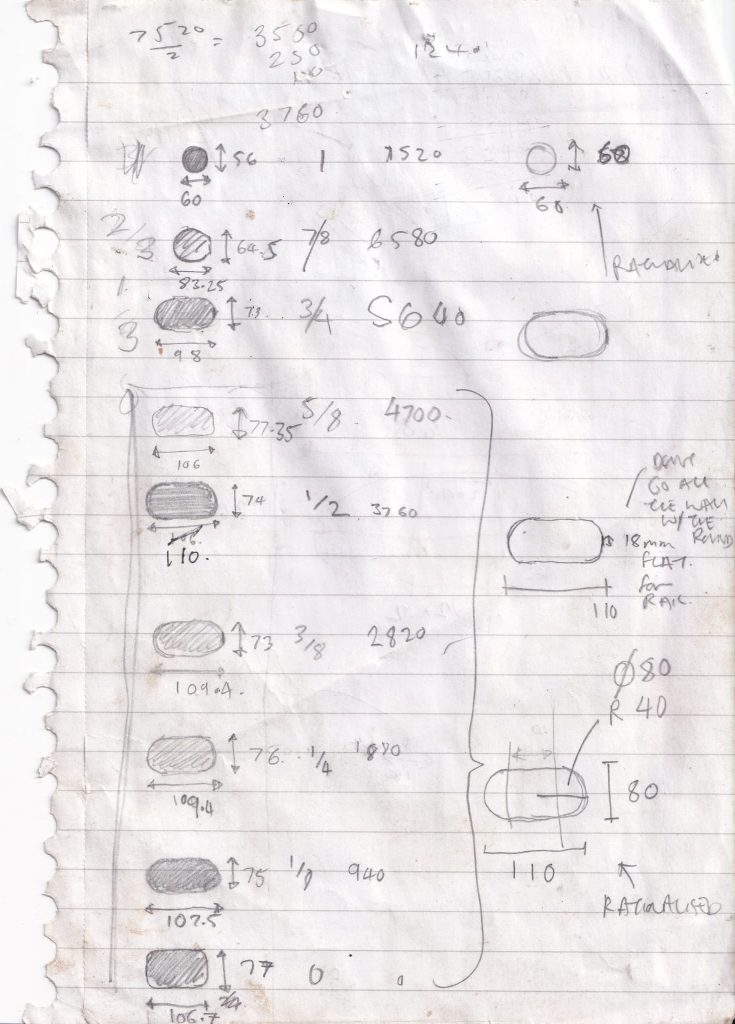 7520/2 = 3500
250
10
1240
3760
56 1 7520
60
60
60
2/3 64.5 7/8 6580
83.25
RATIONALISED
1/3 73 3/4 5640
98
77.35 5/8 4700
106
74 1/2 3760
110.
DONT
GO ALL
THE WAY
W/ THE
ROUND
18mm
FLAT.
for
RAIL.
110
73 3/8 2820
109.4.
Ø80
R 40
76. 1/4 1880
109.4
80
110
75 1/8 940
107.5
RATIONALISED
77 0 0
106.7